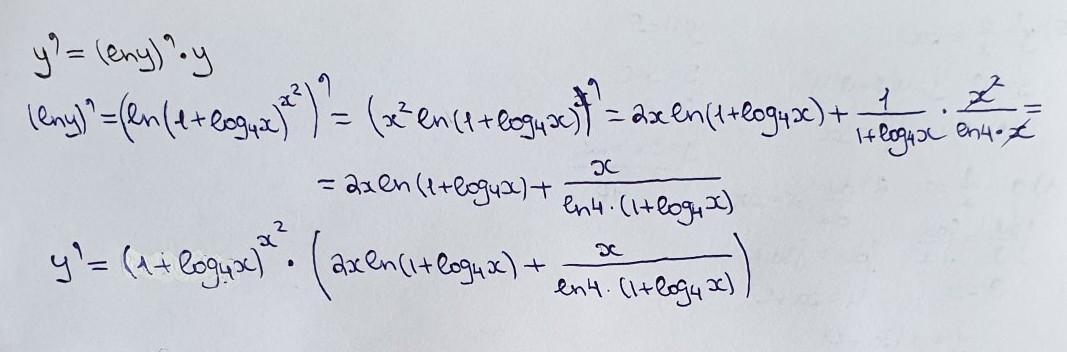 y' = (ln y)' · y
(ln y)' = (ln(1+log₄x)^x²)' = (x² ln(1+log₄x))' = 2x ln(1+log₄x) + 1/(1+log₄x) · x²/(ln4·x) =
= 2x ln(1+log₄x) + x/(ln4·(1+log₄x))
y' = (1+log₄x)^x² · (2x ln(1+log₄x) + x/(ln4·(1+log₄x)))